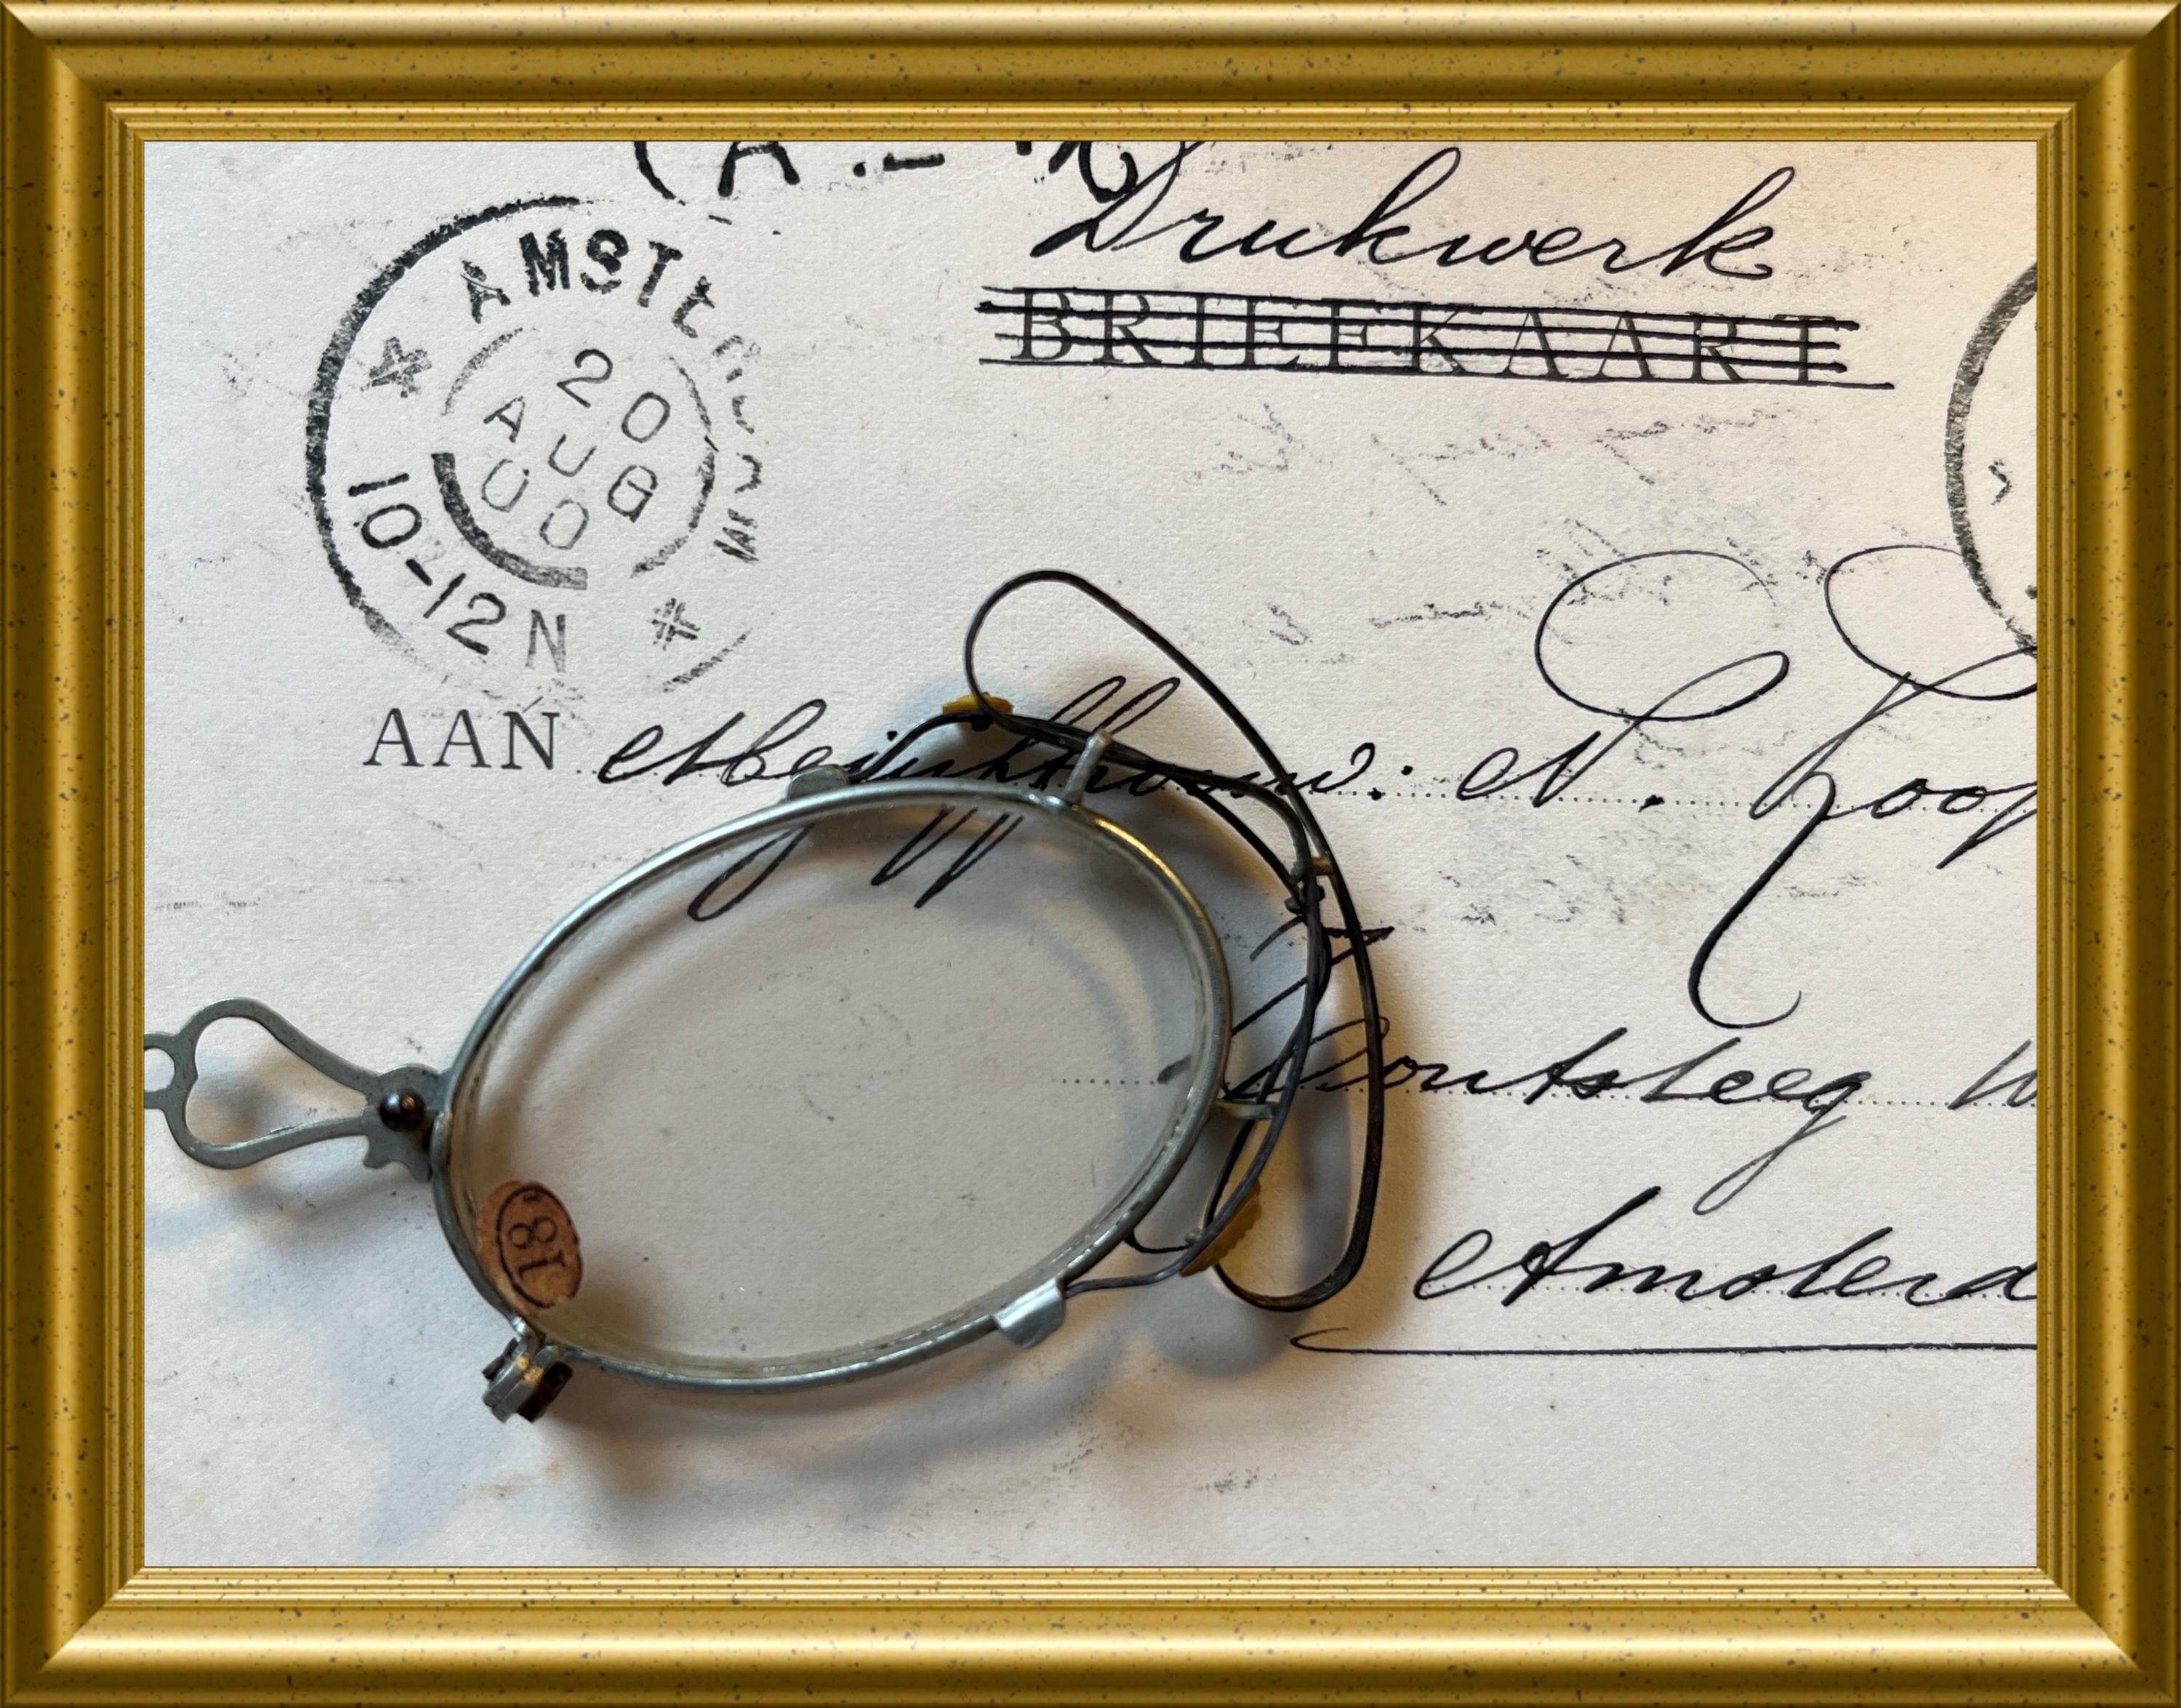 AMSTERDAM
20
AUG
00
10-12N
Drukwerk
BRIEFKAART
AAN Mejuffrouw: N. Koop
Houtsteeg
Amsterd
18"